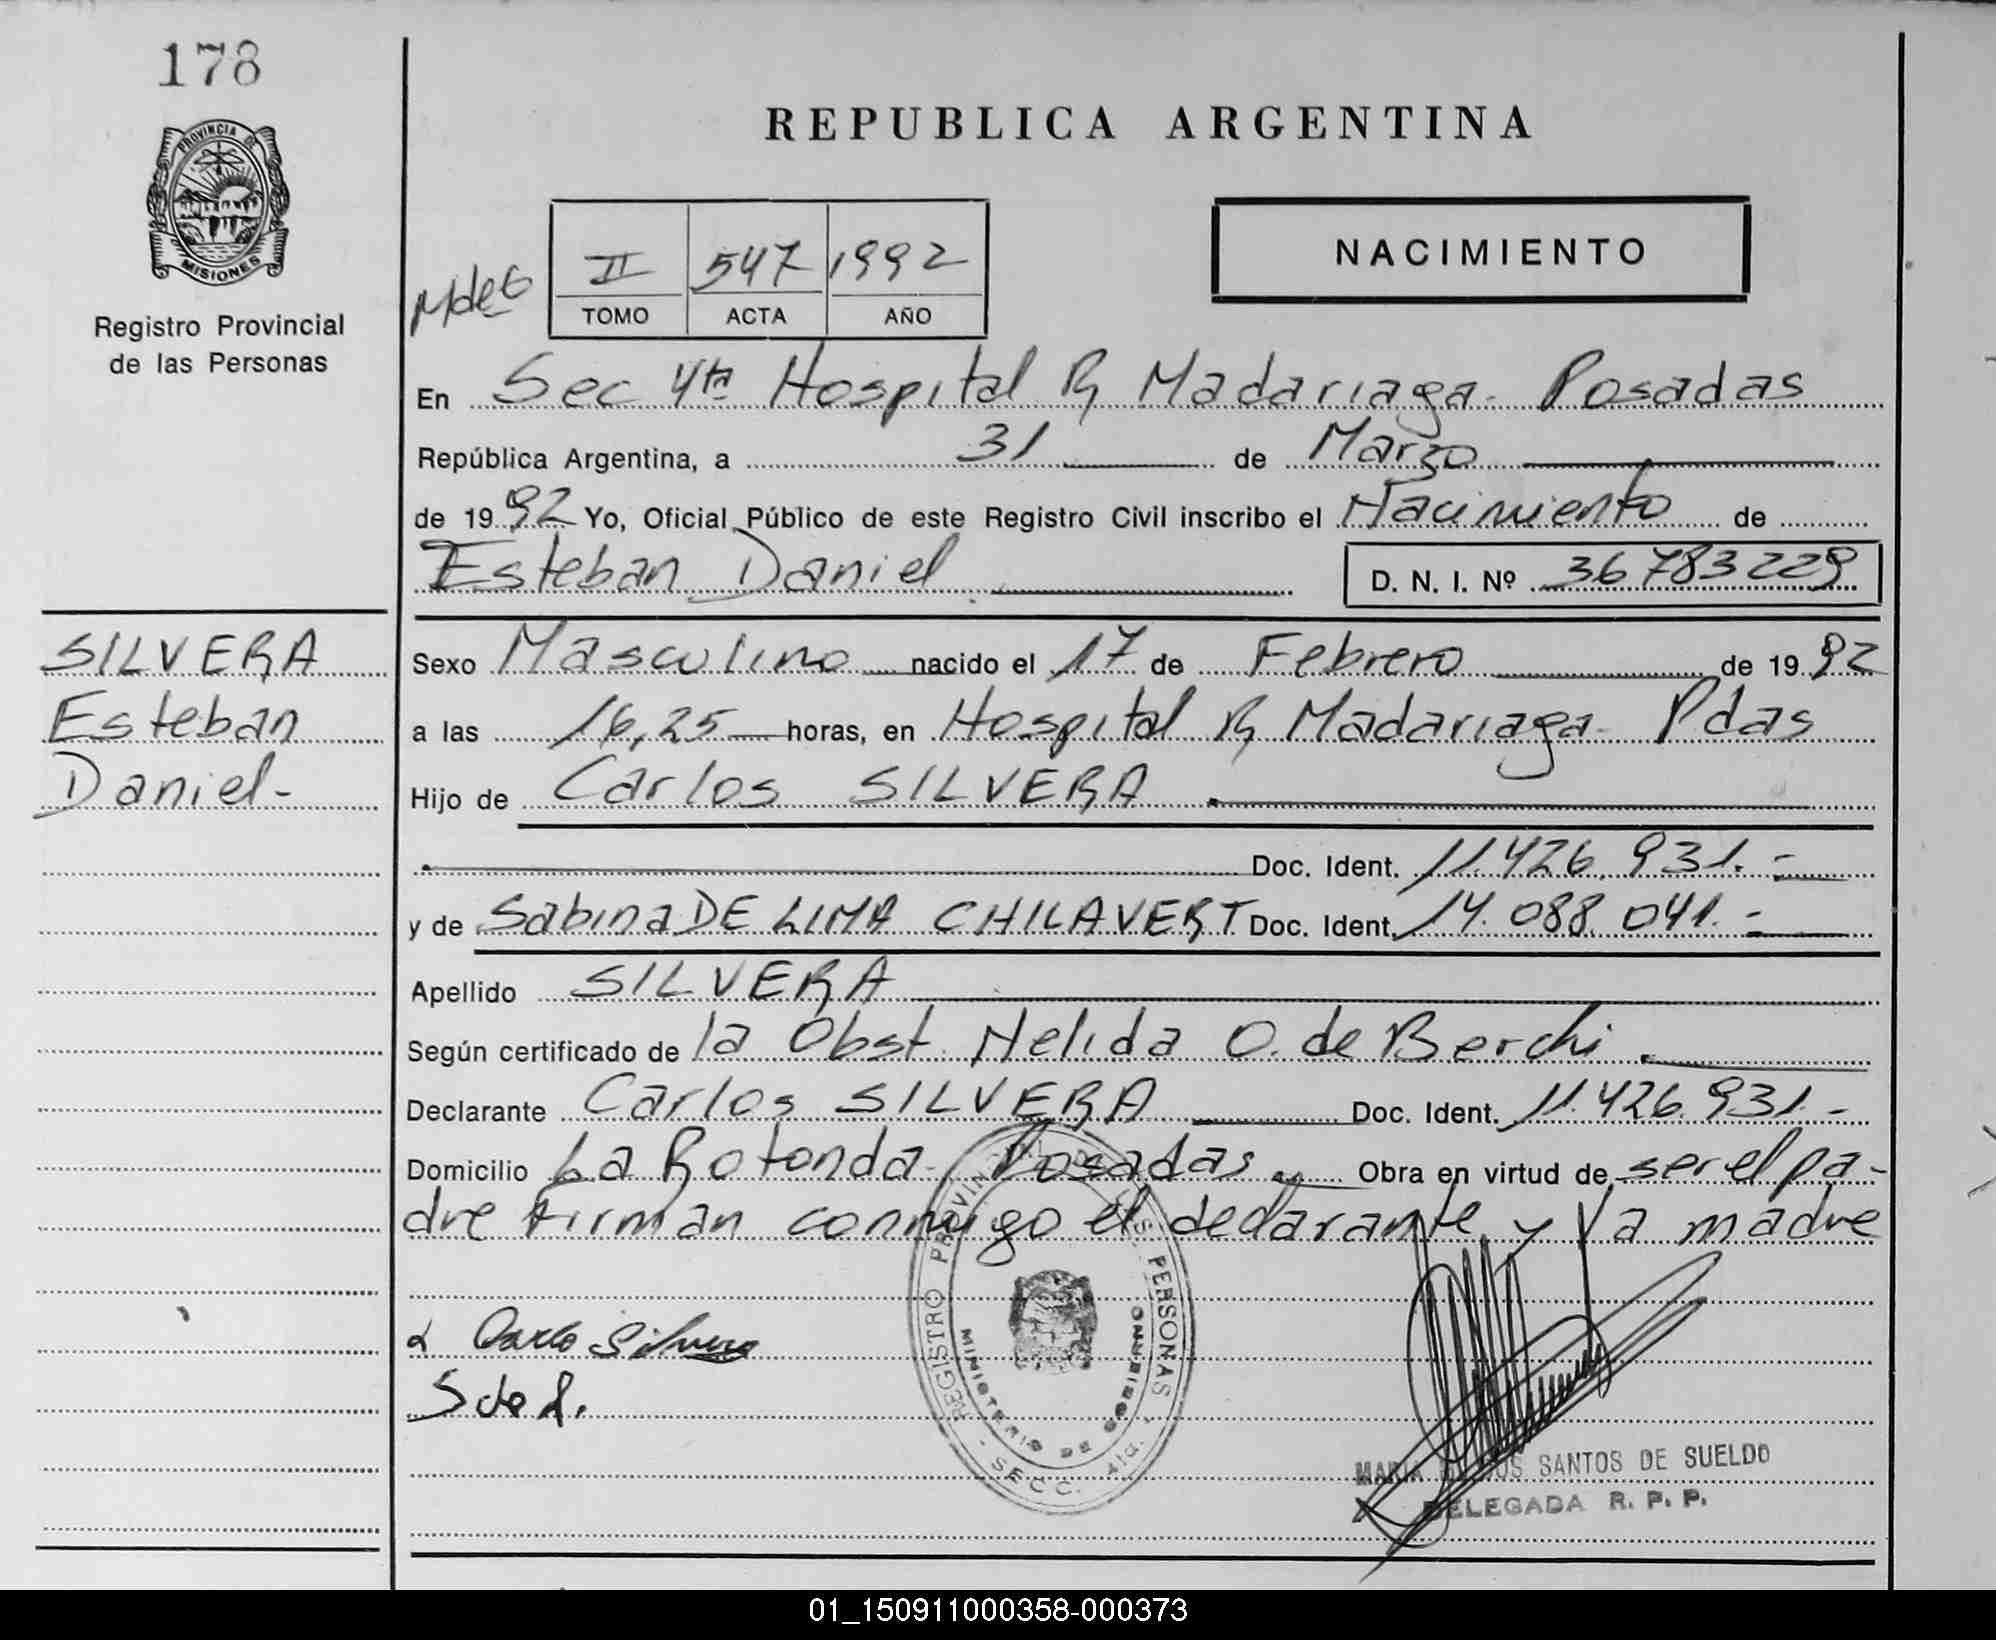 178
PROVINCIA DE
MISIONES
Registro Provincial
de las Personas
REPUBLICA ARGENTINA
NACIMIENTO
II 547 1992
TOMO ACTA AÑO
En Sec 4ta Hospital R Madariaga - Posadas
República Argentina, a 31 de Marzo
de 1992 Yo, Oficial Público de este Registro Civil inscribo el Nacimiento de
Esteban Daniel D. N. I. Nº 36783229
SILVERA
Esteban
Daniel-
Sexo Masculino nacido el 17 de Febrero de 1992
a las 16,25 horas, en Hospital R Madariaga - Pdas
Hijo de Carlos SILVERA
Doc. Ident. 11.426.931.-
y de Sabina DE LIMA CHILAVERT Doc. Ident. 14.088.041.-
Apellido SILVERA
Según certificado de la Obst. Nelida O. de Berchi.
Declarante Carlos SILVERA Doc. Ident. 11.426.931.-
Domicilio La Rotonda - Posadas. Obra en virtud de ser el pa-
dre Firman conmigo el declarante y la madre
Carlo Silvera
S de L.
REGISTRO PROVINCIAL DE LAS PERSONAS
MINISTERIO DE GOBIERNO
- SECC. 4ta. -
MARIA SANTOS DE SUELDO
DELEGADA R. P. P.
01_150911000358-000373